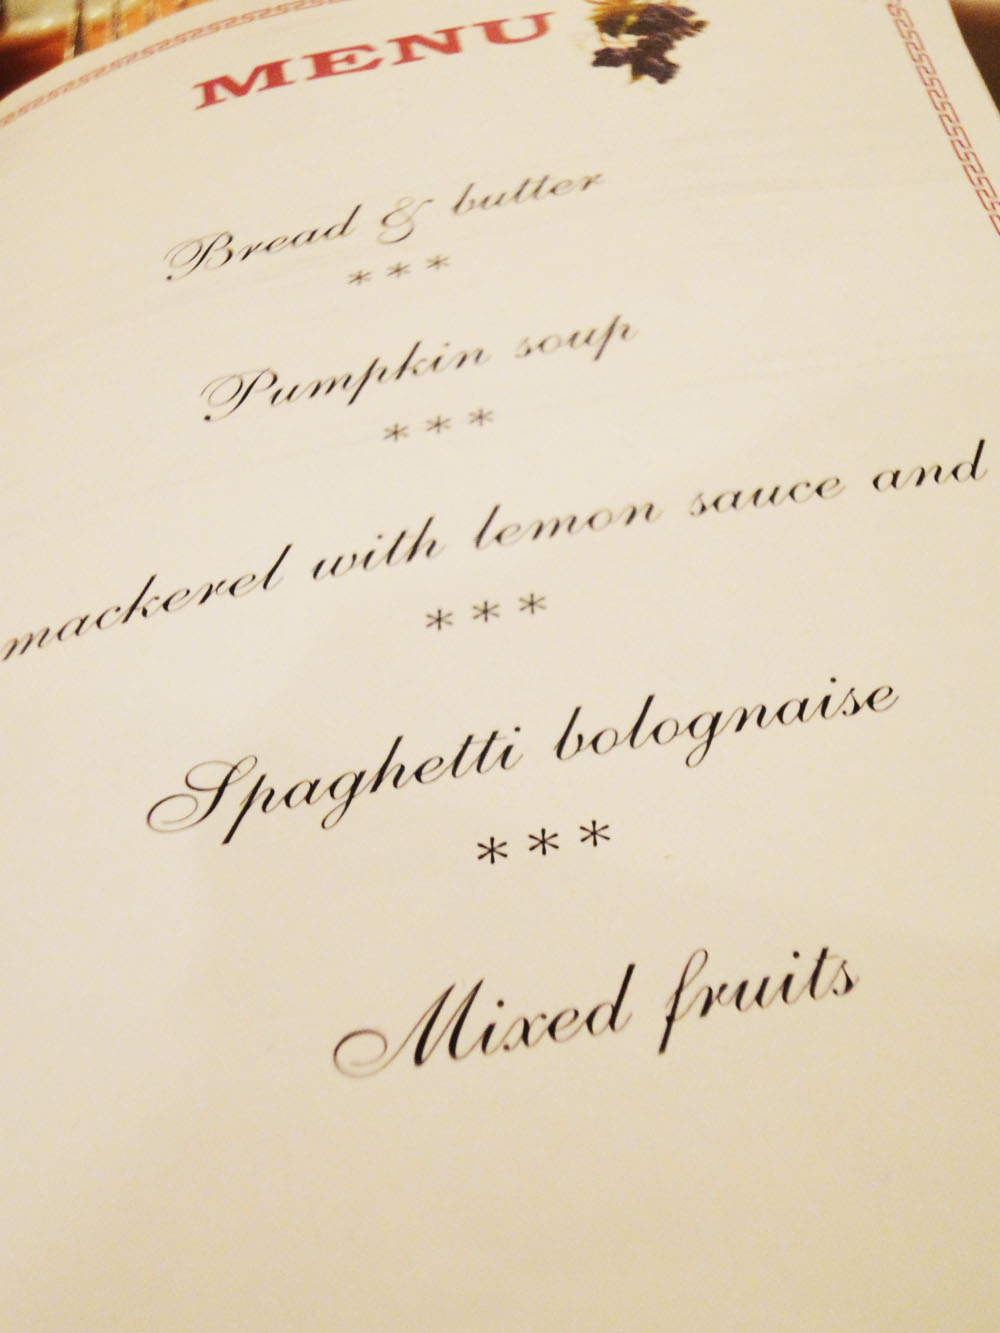 MENU
Bread & butter
***
Pumpkin soup
***
mackerel with lemon sauce and
***
Spaghetti bolognaise
***
Mixed fruits